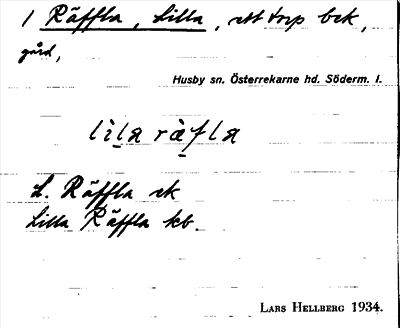 1 Räffla, Lilla, ett torp bek,
gård,
Husby sn. Österrekarne hd. Söderm. l.
lila räfla
L. Räffla ek
Lilla Räffla kb.
LARS HELLBERG 1934.